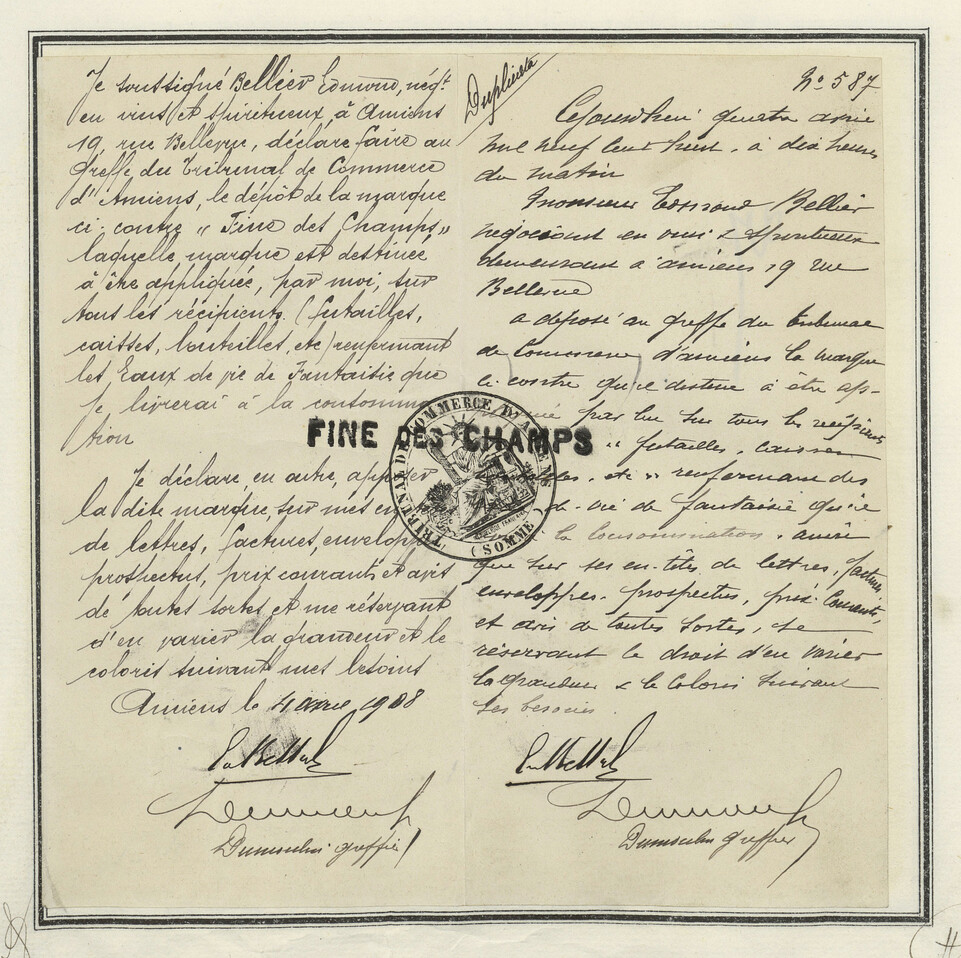 Je soussigné Bellier Edmond, négt
en vins et spiritueux, à Amiens
19, rue Bellevue, déclare faire au
Greffe du Tribunal de Commerce
d'Amiens, le dépôt de la marque
ci-contre „ Fine des Champs „
laquelle marque est destinée
à être appliquée, par moi, sur
tous les récipients (futailles,
caisses, bouteilles, etc) renfermant
les Eaux de vie de Fantaisie que
je livrerai à la consomma
tion
Je déclare, en outre, apposer
la dite marque, sur mes en
de lettres, factures, envelopp
prospectus, prix courants et avis
de toutes sortes, et me réservant
d'en varier la grandeur et le
coloris suivant mes besoins
Amiens le 4 avril 1908
Dumoulin greffier
Duplicata
No 587
Cejourd'hui quatre avril
mil neuf cent huit, à dix heures
du matin
Monsieur Edmond Bellier
négociant en vins & spiritueux
demeurant à Amiens 19 rue
Bellevue
a déposé au greffe du tribunal
de Commerce d'Amiens la marque
ci-contre qu'il destine à être ap-
par lui sur tous les récipients
„ futailles, caisses
etc „ renfermant des
de-vie de fantaisie qu'il
la consommation, ainsi
que sur ses en-têtes de lettres, factures
enveloppes, prospectus, prix courants,
et avis de toutes sortes, se
réservant le droit d'en varier
la grandeur & le coloris suivant
ses besoins.
Dumoulin greffier
FINE DES CHAMPS
TRIBUNAL DE COMMERCE D'AMIENS
(SOMME)